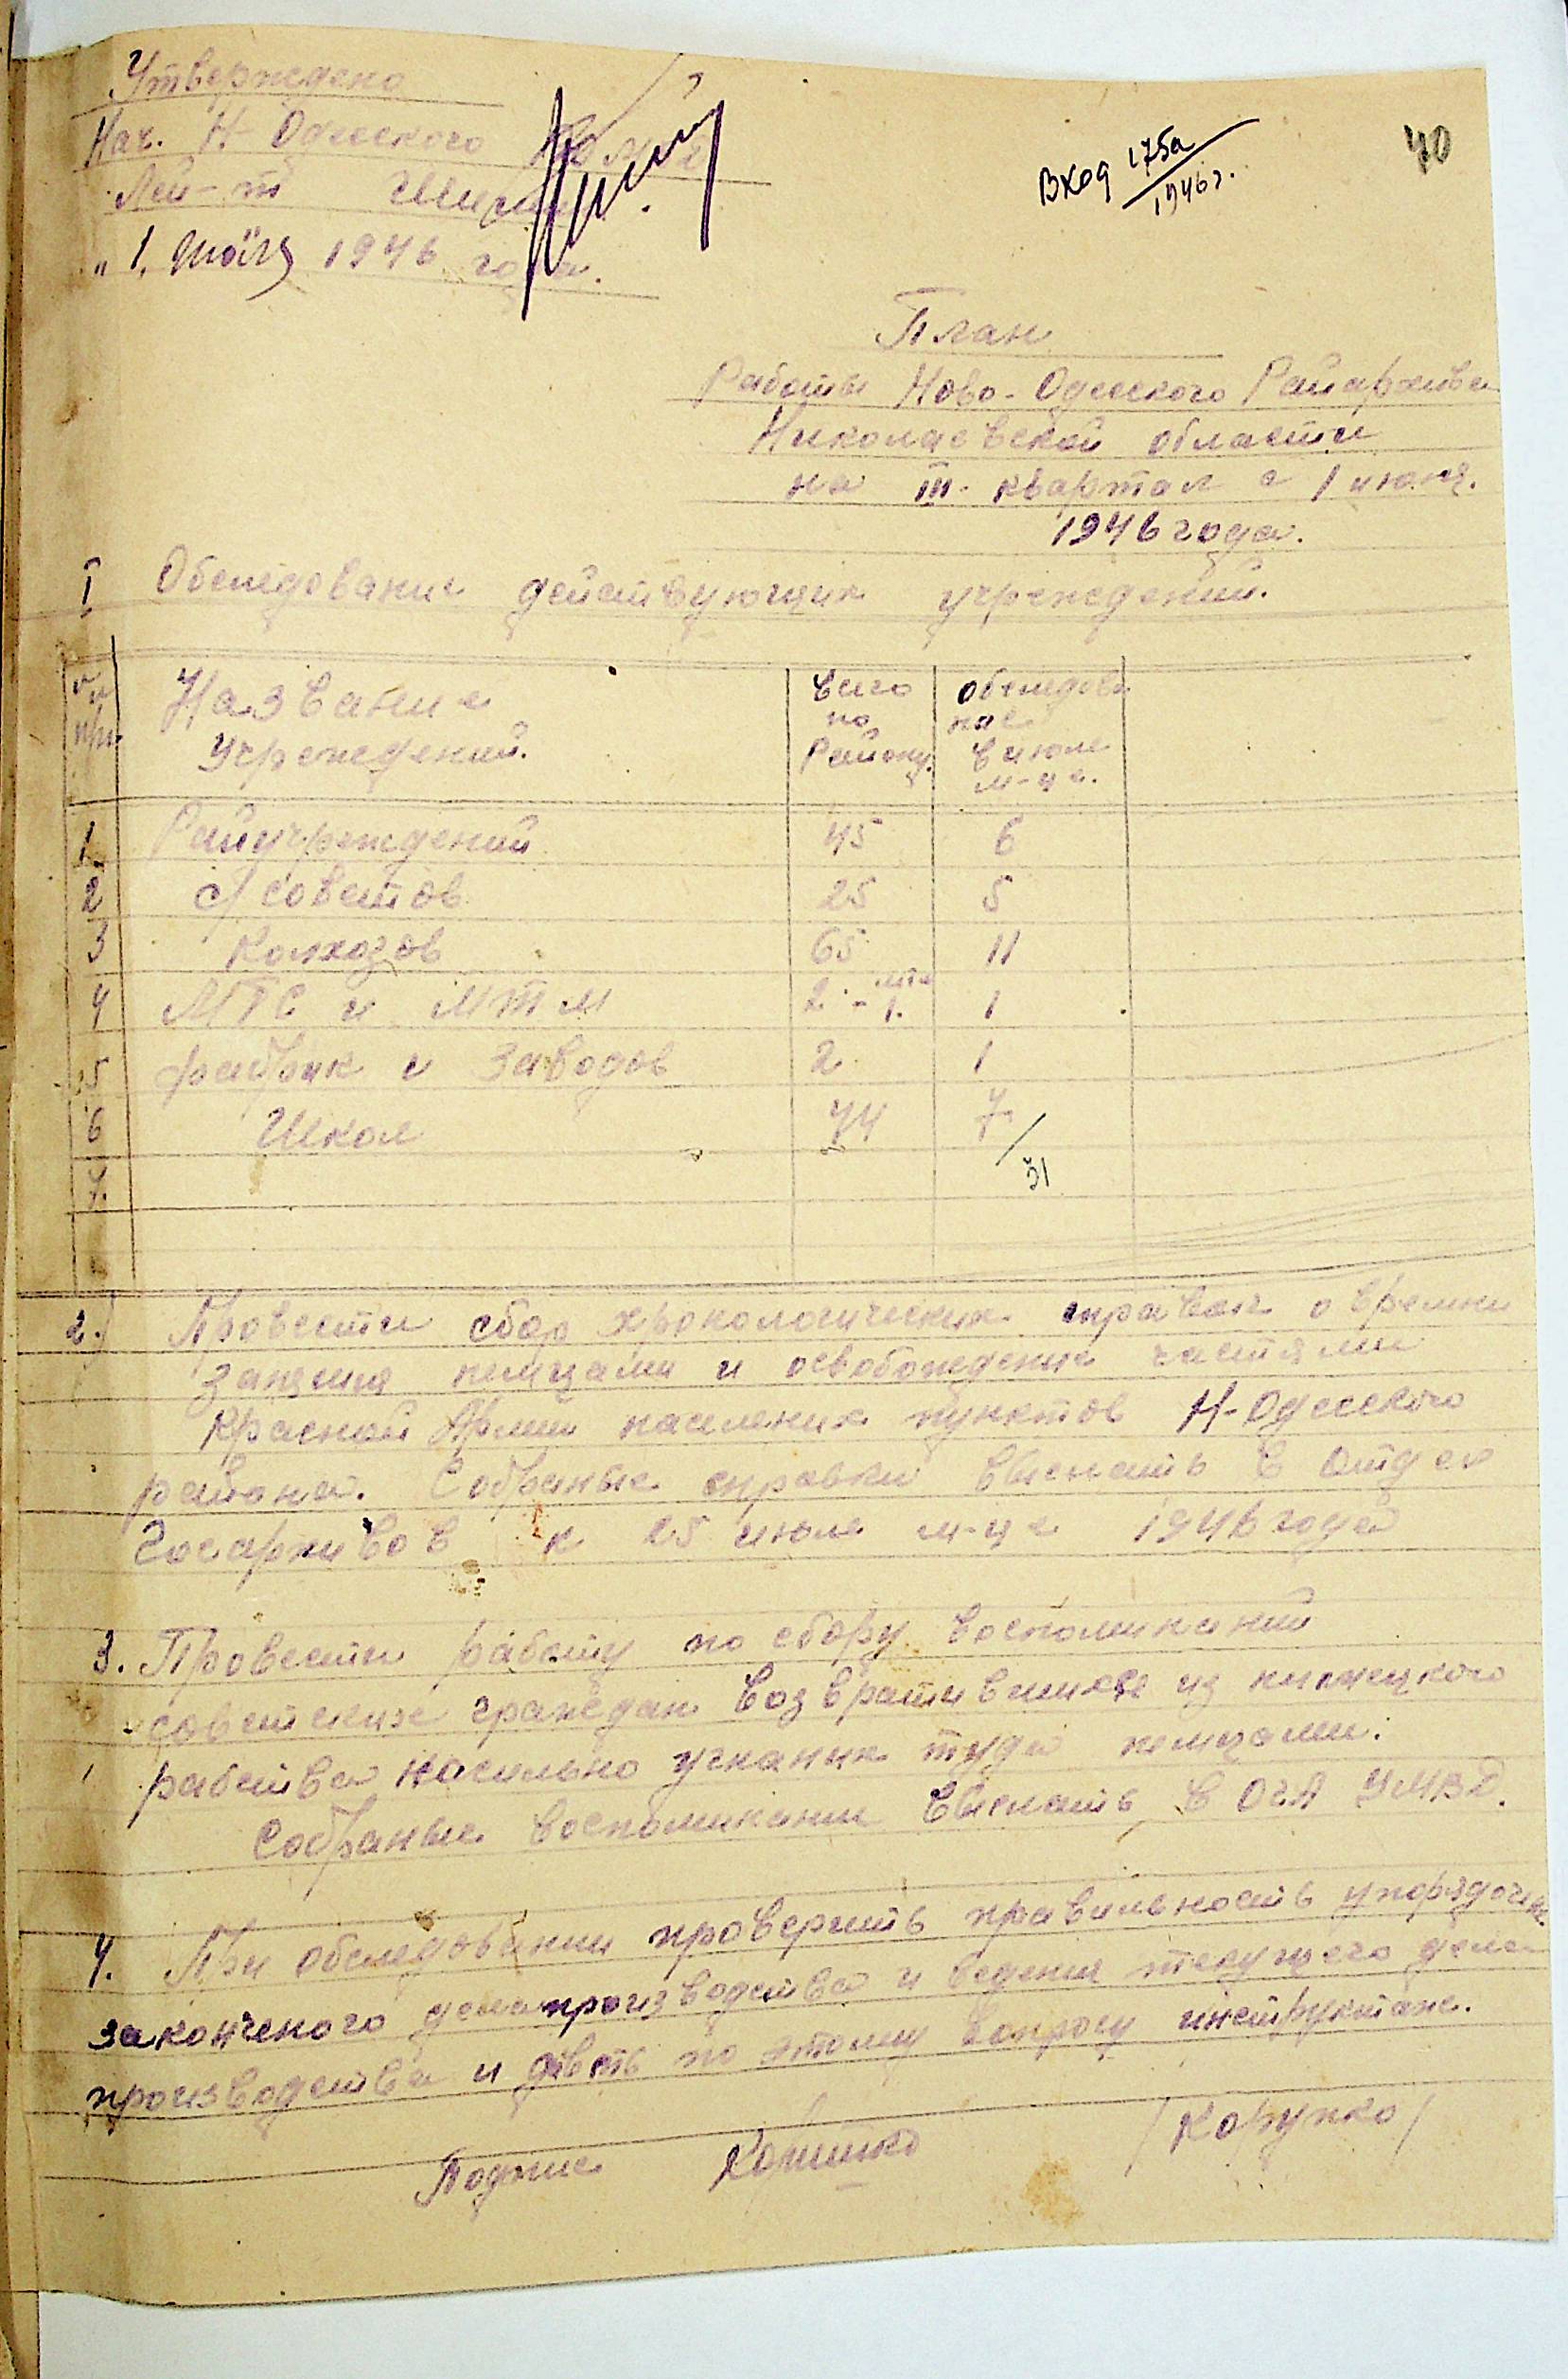 Утверждено
Нач. Н-Одесского
Лей-т
"1." 1946 года.
Вход 175а/1946г.
40
План
Работы Ново-Одесского Райархива
Николаевской области
на III квартал с 1 июля.
1946 года.
I Обследование действующих учреждений.
№№ п/п. Название Учреждений. всего по Району. обследова ние в июле м-це.
1. Райучреждений 45 6
2 с/советов 25 5
3 Колхозов 65 11
4 МТС и МТМ 2 - мтм 1. 1
5 фабрик и заводов 2 1
6 Школ 44 7
7. 31
2.) Провести сбор хронологических справок о времени
занятия немцами и освобождения частями
Красной Армии населених пунктов Н-Одесского
района. Собраные справки выслать в отдел
Госархивов к 25 июля м-ца 1946 года
3. Провести работу по сбору воспоминаний
советских граждан возвратившихся из немецкого
рабства насильно угнаных туда немцами.
Собраные воспоминания выслать в ОГА УМВД.
4. При обследовании проверить правильность упорядочен
законченого делапроизводства и ведения текущего дела
производства и дать по этому вопросу инструктаж.
Подпис /Корупко/